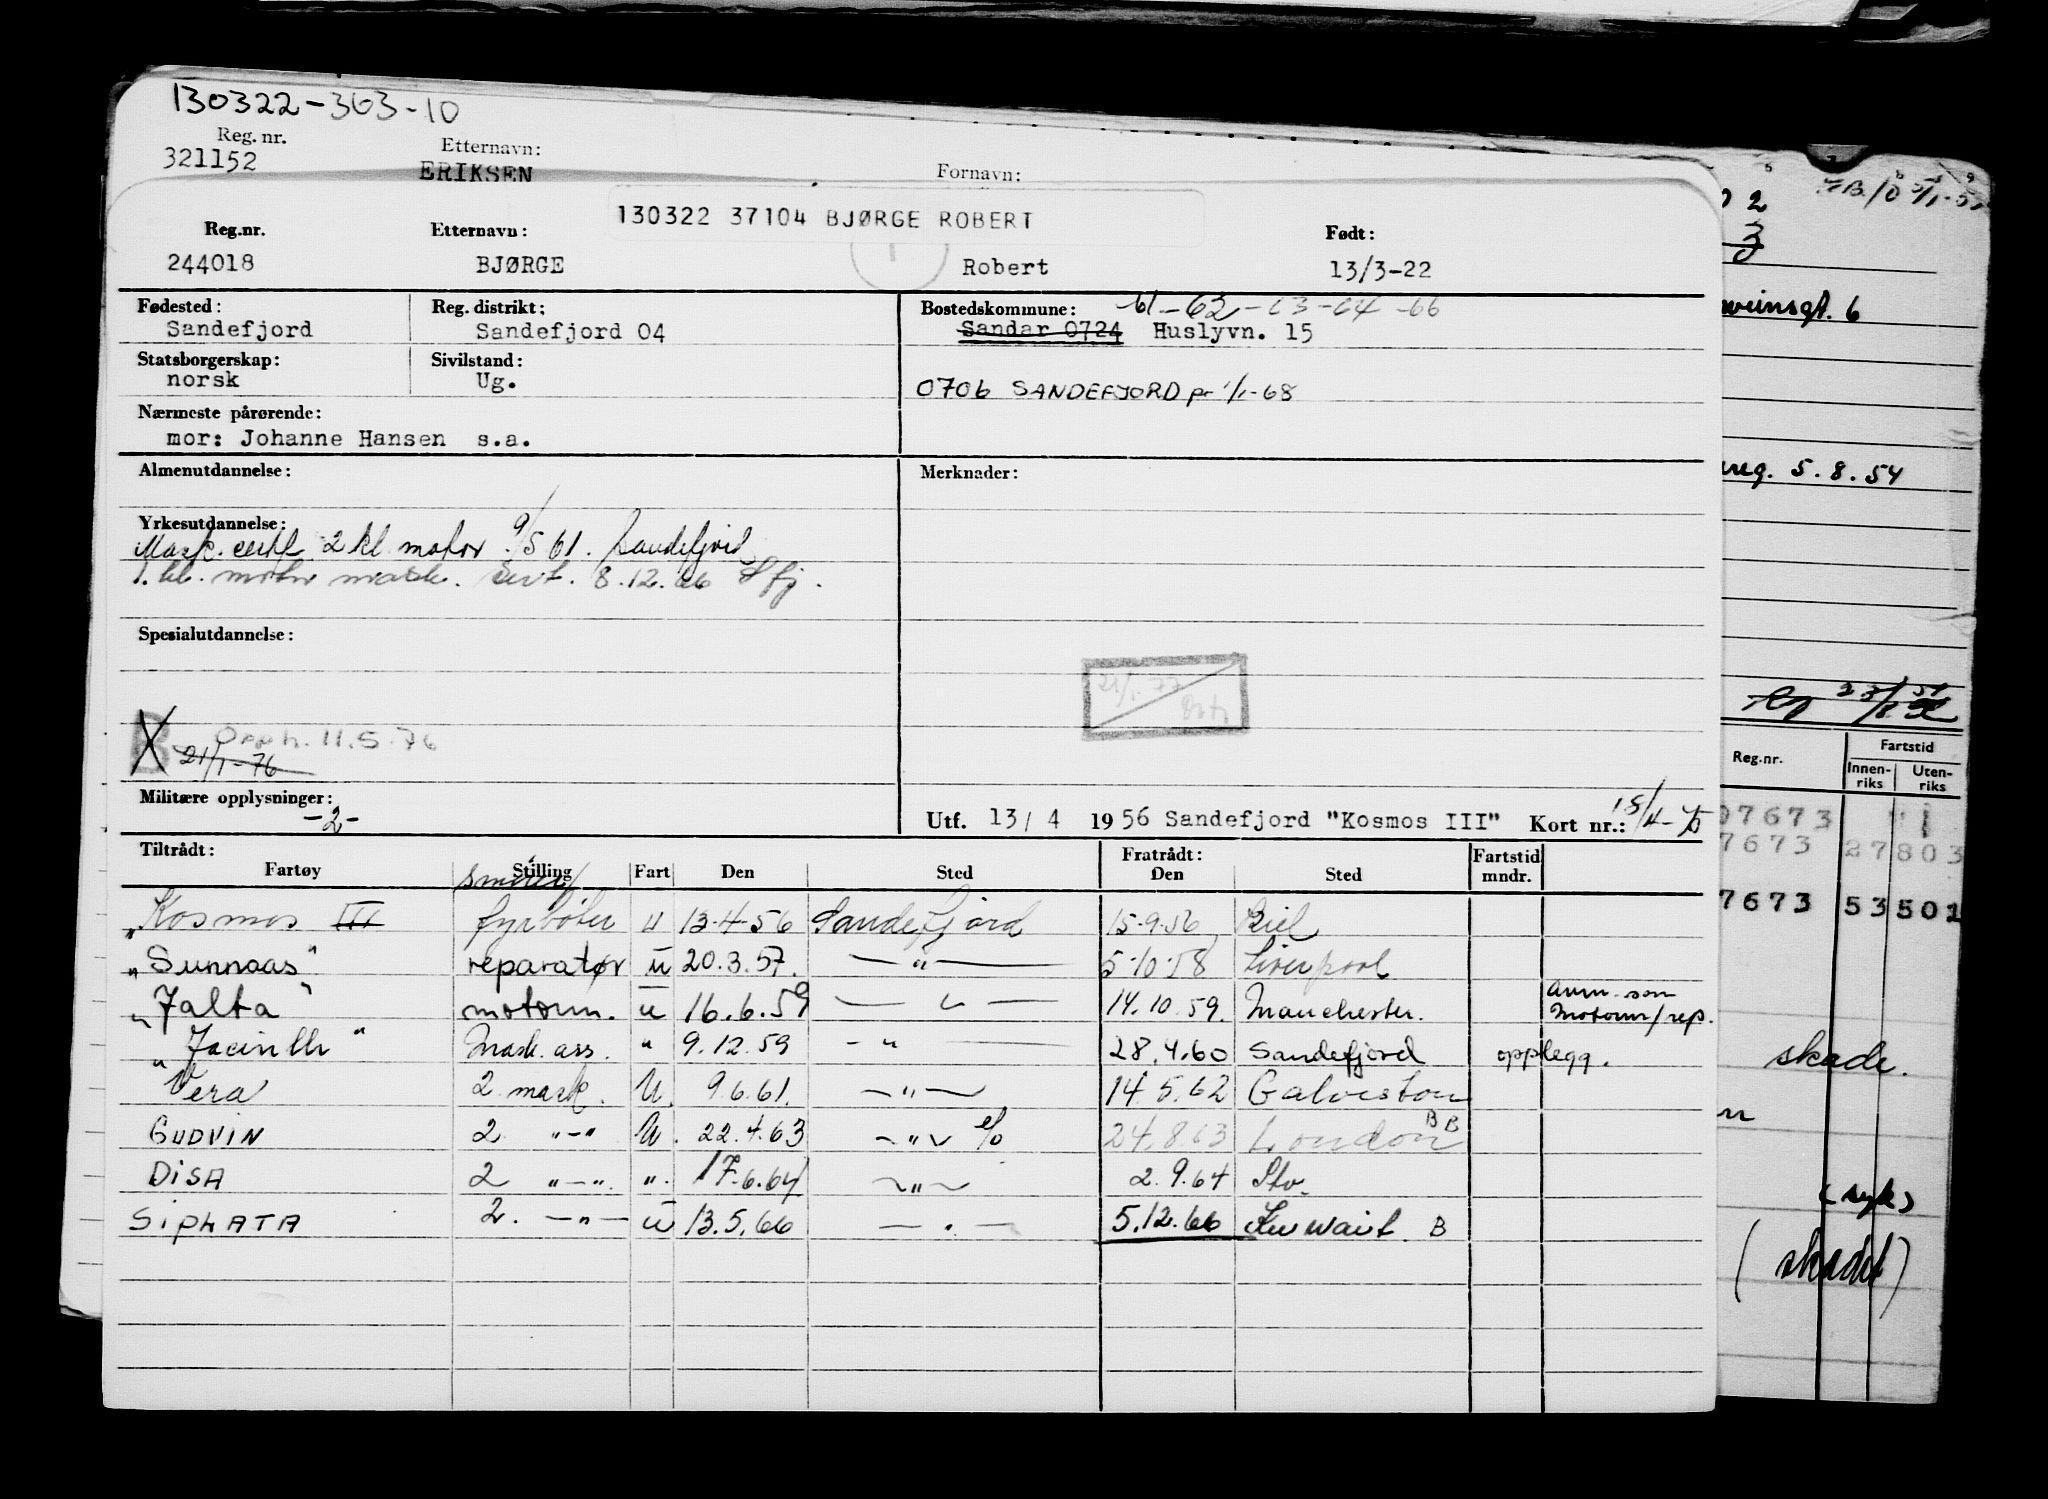 130322-363-10
Reg. nr. Etternavn: Fornavn:
321152 ERIKSEN
130322 37104 BJØRGE ROBERT
Reg.nr. Etternavn: Født:
244018 BJØRGE Robert 13/3-22
Fødested: Reg. distrikt: Bostedskommune: 61-62-63-64-66
Sandefjord Sandefjord 04 Sandar 0724 Huslyvn. 15
Statsborgerskap: Sivilstand:
norsk Ug.
0706 SANDEFJORD pr 1/1-68
Nærmeste pårørende:
mor: Johanne Hansen s.a.
Almenutdannelse: Merknader:
Yrkesutdannelse:
Mask. certf 2 kl motor 9/5 61. Sandefjord
1. kl. motor mask. sert. 8.12.66 Sfj.
Spesialutdannelse:
21/1-77
B Opph. 11.5.76
21/1-76
Militære opplysninger:
-2-
Utf. 13/4 1956 Sandefjord "Kosmos III" Kort nr.:
Tiltrådt: Fratrådt: Fartstid
Fartøy Stilling Fart Den Sted Den Sted mndr.
smører/
"Kosmos III fyrbøter u 13-4-56 Sandefjord 15-9-56 Kiel
"Sunnaas" reparatør u 20.3.57. —"— 5-10-58 Liverpool
"Jalta" motorm. u 16.6.59 —"— 14.10.59. Manchester. Anm. som
Motorm/rep.
"Jacinth" Mask. ass. " 9.12.59 -"- 28.4.60 Sandefjord opplegg.
Vera 2 mask. U. 9.6.61. —"— 14.5.62 Galveston
GUDVIN 2 "-" U. 22.4.63 -"- e/o 24.8.63 London BB
DISA 2 "-". ". 17.6.64 -"- 2.9.64 Stv.
SIPHATA 2. -"- u 13.5.66 —"— 5.12.66 Kuwait. B
02
3
weinsgt. 6
reg. 5.8.54
Reg.nr. Fartstid
Innen-riks Uten-riks
07673
7673 27803
7673 53501
skade.
(syk)
(skadet)